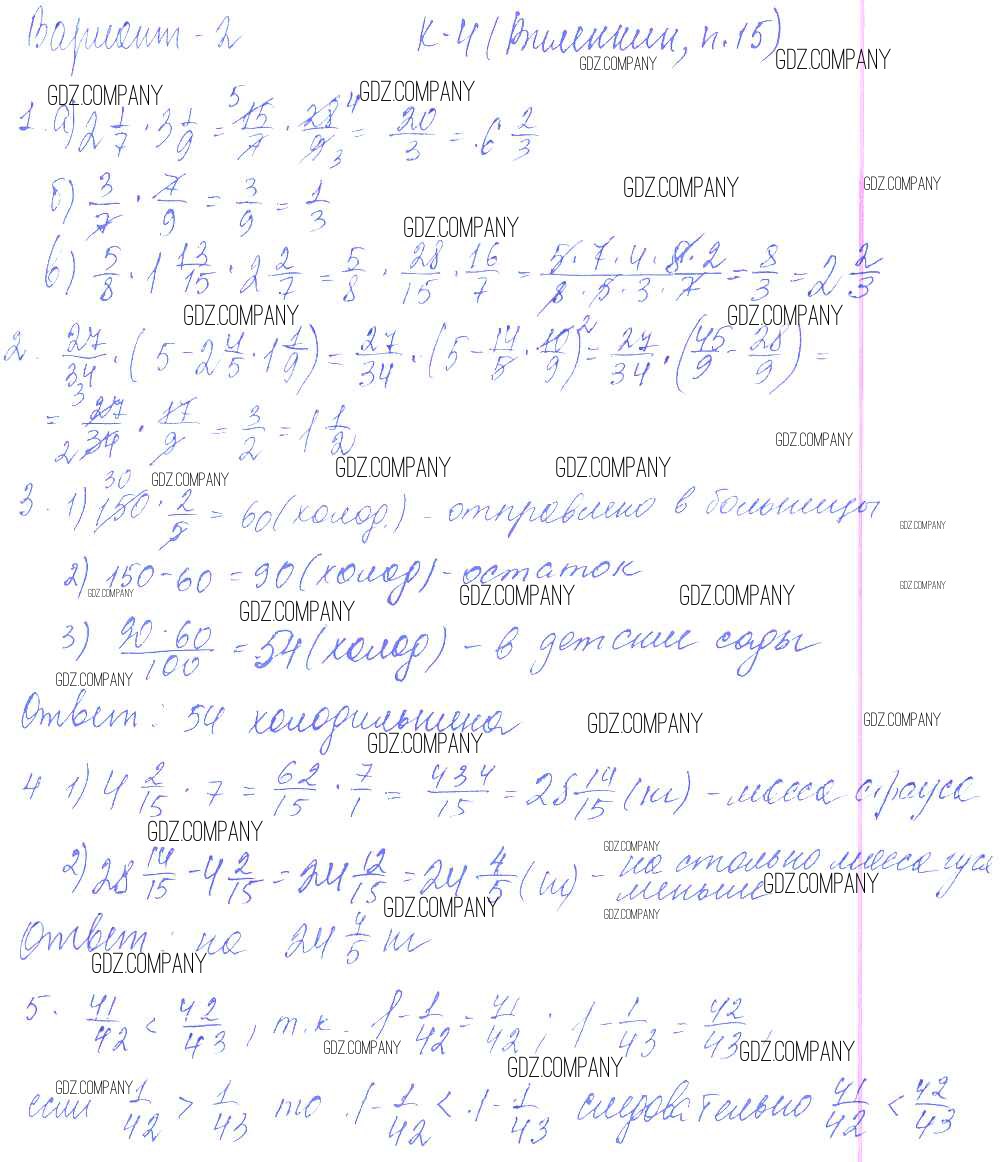 Вариант - 2 К-4 (Виленкин, п.15)
GDZ.COMPANY GDZ.COMPANY
GDZ.COMPANY GDZ.COMPANY
1. а) 2 1/7 · 3 1/9 = 15/7 · 28/9 = 20/3 = 6 2/3
GDZ.COMPANY GDZ.COMPANY
б) 3/7 · 7/9 = 3/9 = 1/3
GDZ.COMPANY
в) 5/8 · 1 13/15 · 2 2/7 = 5/8 · 28/15 · 16/7 = 5·7·4·8·2/8·5·3·7 = 8/3 = 2 2/3
GDZ.COMPANY GDZ.COMPANY
2. 27/34 · (5 - 2 4/5 · 1 1/9) = 27/34 · (5 - 14/5 · 10/9) = 27/34 · (45/9 - 28/9) =
= 27/34 · 17/9 = 3/2 = 1 1/2
GDZ.COMPANY
GDZ.COMPANY GDZ.COMPANY
GDZ.COMPANY
3. 1) 150 · 2/5 = 60 (холод.) - отправлено в больницы
GDZ.COMPANY
2) 150 - 60 = 90 (холод) - остаток
GDZ.COMPANY GDZ.COMPANY GDZ.COMPANY GDZ.COMPANY
GDZ.COMPANY
3) 90·60/100 = 54 (холод) - в детские сады
GDZ.COMPANY
Ответ: 54 холодильника
GDZ.COMPANY GDZ.COMPANY
GDZ.COMPANY
4 1) 4 2/15 · 7 = 62/15 · 7/1 = 434/15 = 28 14/15 (кг) - масса страуса
GDZ.COMPANY
GDZ.COMPANY
2) 28 14/15 - 4 2/15 = 24 12/15 = 24 4/5 (кг) - на столько масса гуся
меньше
GDZ.COMPANY
GDZ.COMPANY GDZ.COMPANY
Ответ: на 24 4/5 кг
GDZ.COMPANY
5. 41/42 < 42/43, т.к. 1 - 1/42 = 41/42; 1 - 1/43 = 42/43,
GDZ.COMPANY GDZ.COMPANY
GDZ.COMPANY
GDZ.COMPANY
если 1/42 > 1/43 то 1 - 1/42 < 1 - 1/43 следовательно 41/42 < 42/43